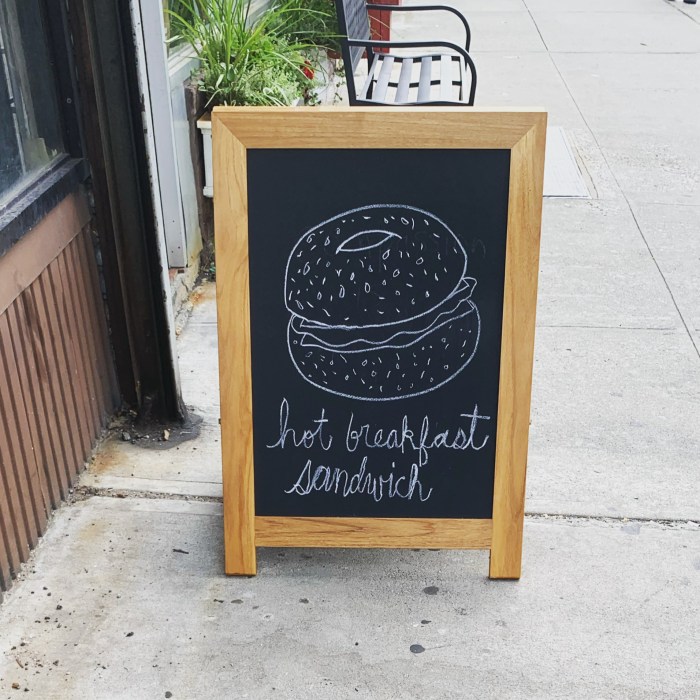 hot breakfast
sandwich